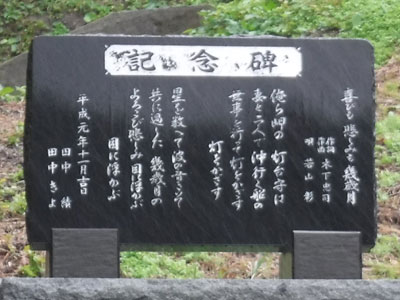 記念碑
喜びも悲しみも幾歳月
作詞
作曲 木下忠司
唄 若山彰
俺ら岬の 灯台守は
妻と二人で 沖行く船の
無事を祈って 灯をかざす
灯をかざす
星を数へて 波の音きいて
共に過した 幾歳月の
よろこび悲しみ 目に浮かぶ
目に浮かぶ
平成元年十一月吉日
田中
田中きよ